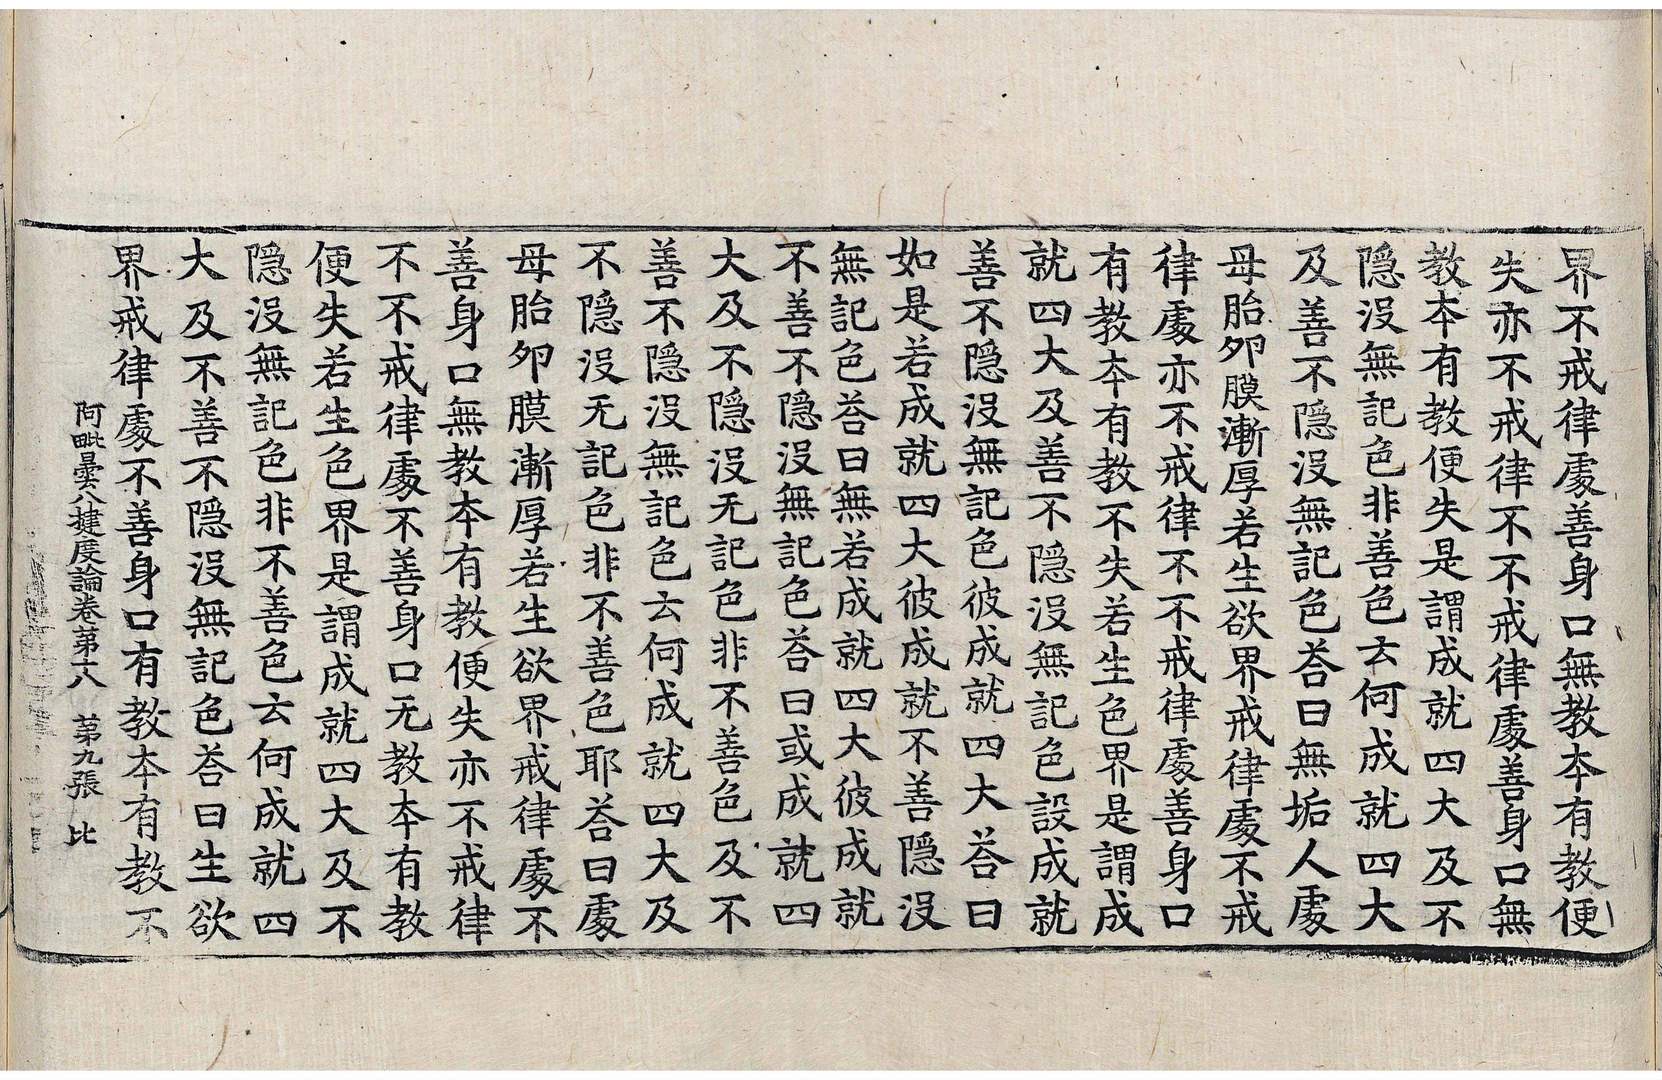 界不戒律處善身口無教夲有教便
失亦不戒律不不戒律處善身口無
教夲有教便失是謂成就四大及不
隠沒無記色非善色云何成就四大
及善不隠沒無記色荅曰無垢人處
母胎卵膜漸厚若生欲界戒律處不戒
律處亦不戒律不不戒律處善身口
有教夲有教不失若生色界是謂成
就四大及善不隠沒無記色設成就
善不隠沒無記色彼成就四大荅曰
如是若成就四大彼成就不善隠沒
無記色荅曰無若成就四大彼成就
不善不隠沒無記色荅曰或成就四
大及不隠沒无記色非不善色及不
善不隠沒無記色云何成就四大及
不隠沒无記色非不善色耶荅曰處
母胎卵膜漸厚若生欲界戒律處不
善身口無教夲有教便失亦不戒律
不不戒律處不善身口无教夲有教
便失若生色界是謂成就四大及不
隠沒無記色非不善色云何成就四
大及不善不隠沒無記色荅曰生欲
界戒律處不善身口有教夲有教不
阿毗曇八揵度論卷第十八 第九張 比